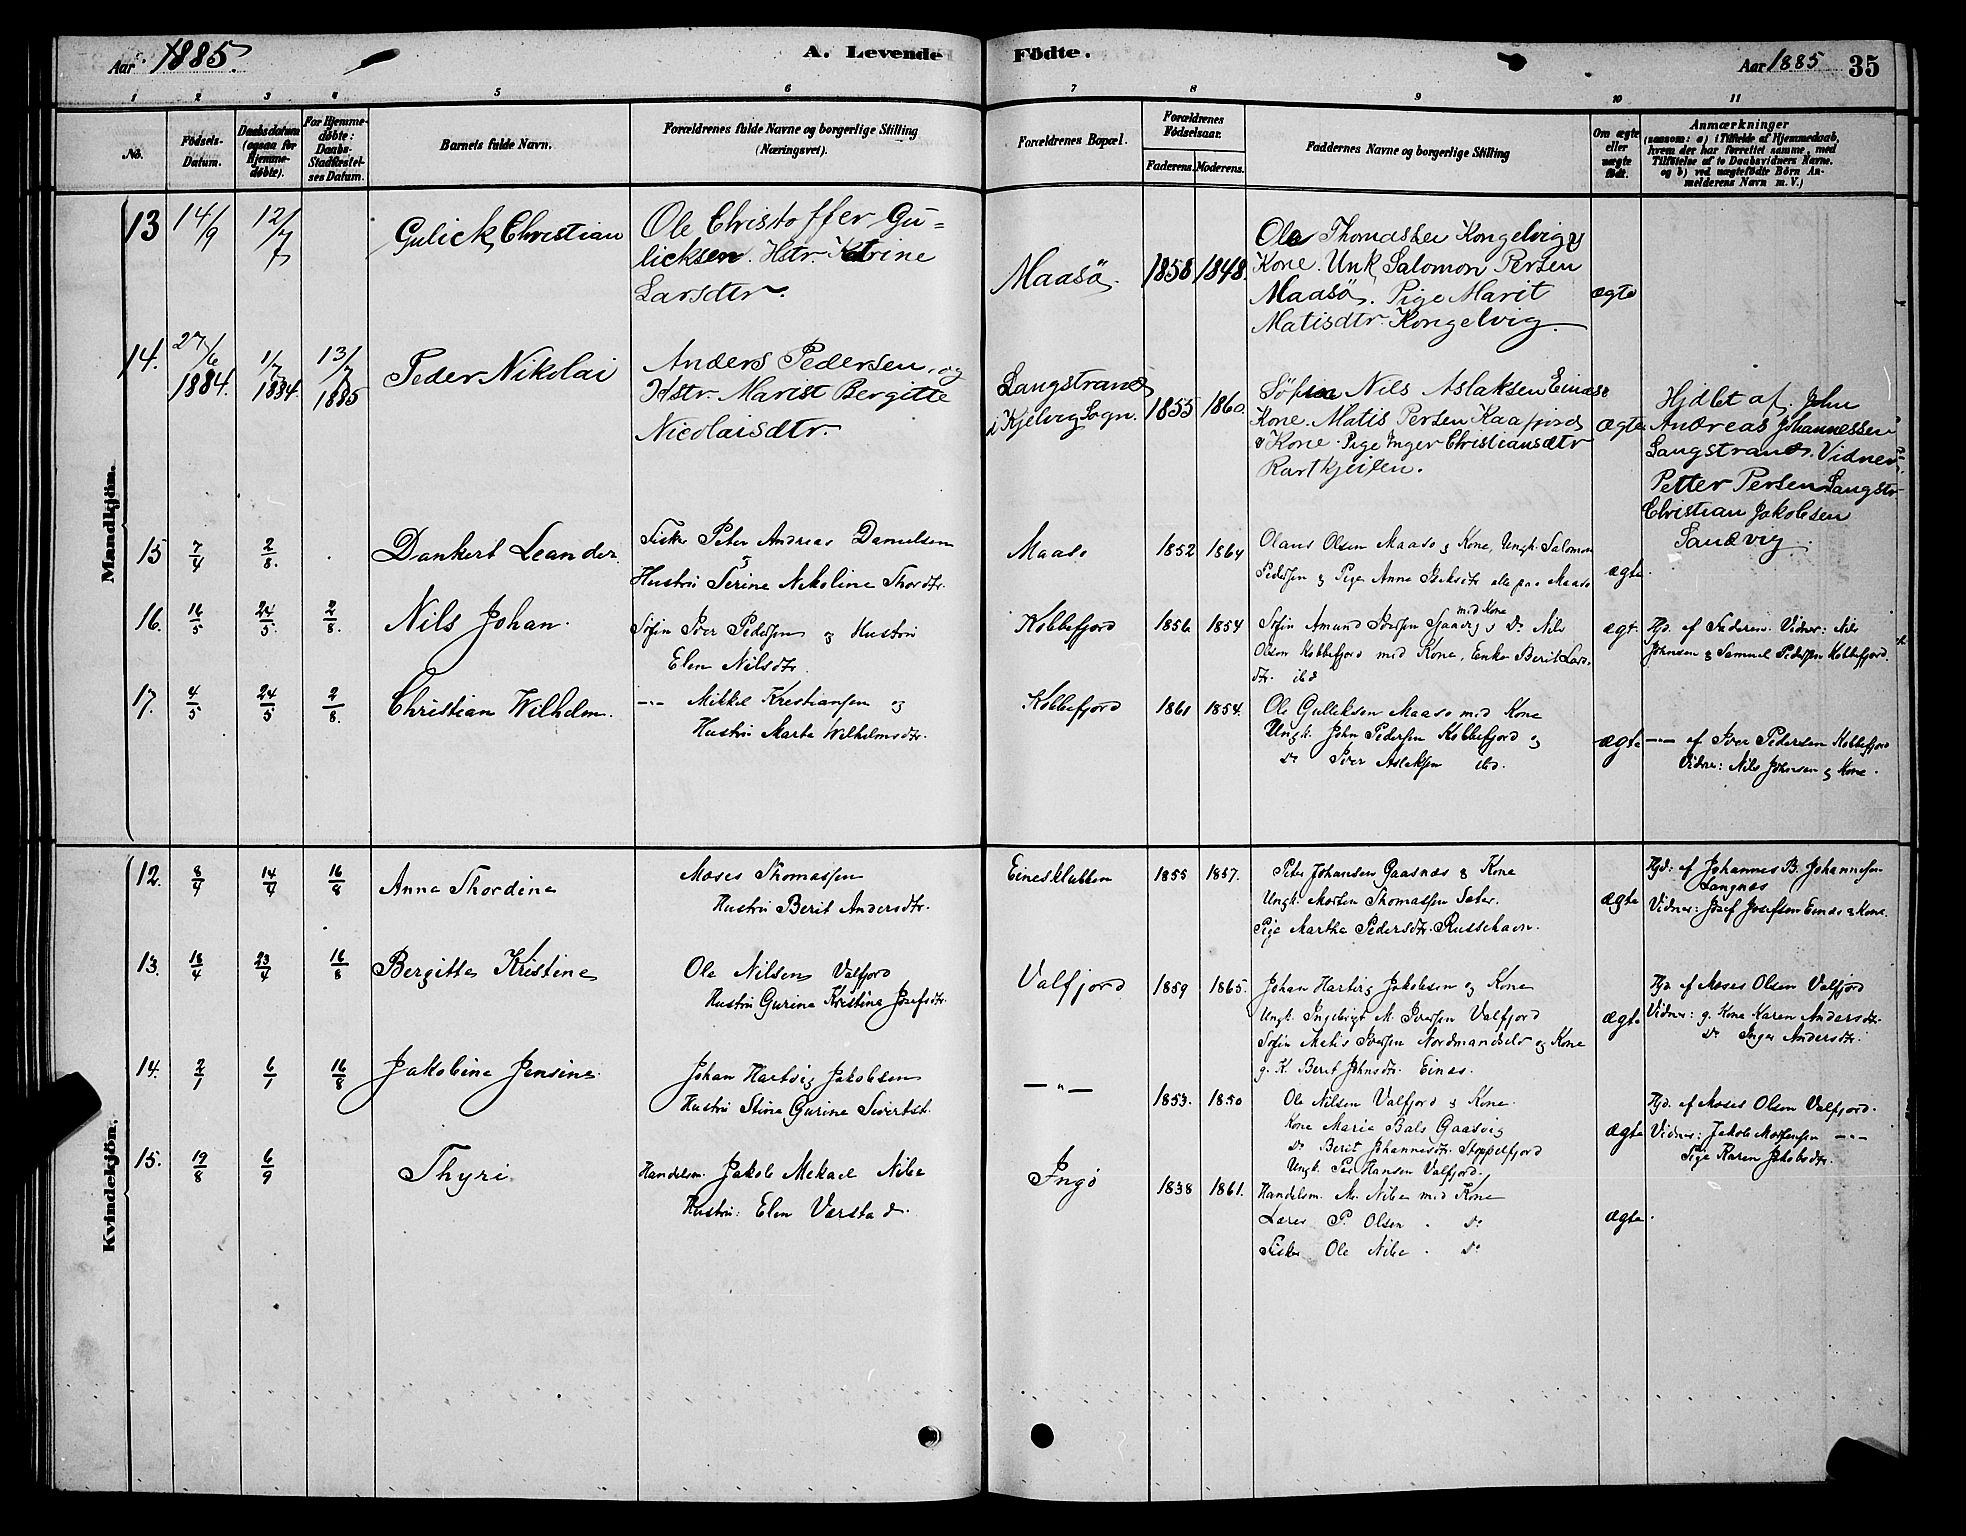 Aar 1885.
A. Levende Fødte.
Aar 1885
35
1 2 3 4 5 6 7 8 9 10 11
No.
Fødsels-Datum.
Daabsdatum (ogsaa for Hjemmedøbte).
For Hjemmedøbte: Daabs-Stadfæstelses Datum.
Barnets fulde Navn.
Forældrenes fulde Navne og borgerlige Stilling (Næringsvei).
Forældrenes Bopæl.
Forældrenes Fødselsaar.
Faderens. Moderens.
Faddernes Navne og borgerlige Stilling
Om ægte eller uægte født.
Anmærkninger
(saasom: a) i Tilfælde af Hjemmedaab, hvem der har forrettet samme, med Tilføielse af to Daabsvidners Navne. og b) ved uægtefødte Børn Anmelderens Navn m. V.)
Mandkjøn.
13 14/9 12/7
Gulick Christian
Ole Christoffer Gu-
licksen. Hstr Katrine
Larsdtr.
Maasö. 1858 1848.
Ole Thomassen Kongelvig &
Kone. Unk Salomon Persen
Maasö. Pige Marit
Matisdtr. Kongelvig.
ægte
14. 27/6 1884. 1/7 1884. 13/7 1885
Peder Nikolai
Anders Pedersen, og
Hstr. Marist Bergitte
Nicolaisdtr.
Langstrand
i Kjelvig Sogn. 1855 1860.
Nils Aslaksen Einas &
Kone. Matis Persen Kaafjord
& Kone. Pige Inger Christiansdtr
ægte
Hjdbt af. John
Andreas Johannessen
Langstrand. Vidner
Petter Persen Langstr
Christian Jakobsen
Sandvig.
15 7/4 2/8.
Dankert Leander
Fisker Peter Andreas Danielsen
Hustru Serine Nikoline Thordtr.
Maasö 1852 1864
Olaus Olsen Maasö & Kone, Ungk. Salomon
Pedersen & Pige Anna alle paa Maasö
ægte.
16. 16/5 24/5 2/8.
Nils Johan.
Söfin Iver Pedersen og Hustru
Elen Nilsdtr.
Kobbefjord 1856 1854
Söfin Amund Iversen med Kone & Do Nils
Olsen Kobbefjord med Kone, Enke Berit Lars-
dtr. ibd
ægt.
Hjd. af Faderen. Vidner: Nils
Johnsen & Samuel Pedersen Kobbefjord.
17. 4/5 24/5 2/8.
Christian Wilhelm.
—"— Mikkel Kristiansen og
Hustru Marte Wilhelmsdtr.
Kobbefjord 1861 1854.
Ole Gulliksen Maasö med Kone
Ungk. John Pedersen Kobbefjord og
Do Iver Aslaksen ibd.
ægte
—"— af Iver Pedersen Kobbefjord
Vidner: Nils Johnsen & Kone.
Kvindekjøn.
12. 8/4 14/4 16/8
Anna Thordine
Moses Thomassen
Hustru Berit Andersdtr.
Einesklubben 1855 1857.
Peter Johansen Gaasnæs & Kone
Ungk. Morten Thomassen
Pige Marthe Pedersdtr. Russehavn.
ægte
Hjd: af Johannes B. Johannesen
Langnæs
Vidner: Josef Josefsen Einæs & Kone.
13. 18/4 23/4 16/8
Bergitte Kristine
Ole Nilsen Valfjord
Hustru Gurine Kristine Josefsdtr.
Valfjord 1859 1865.
Johan Hartvig Jakobsen og Kone
Ungk. Ingebrigt M. Iversen Valfjord
Söfin Matis Iversen Nordmandselv og Kone
g. K. Berit Johnsdtr. Einæs.
ægte
Hjd. af Moses Olsen Valfjord
Vidner: g. Kone Karen Andersdtr.
Do Inger Andersdtr.
14. 2/1 6/1 16/8
Jakobine Jensine
Johan Hartvig Jakobsen
Hustru Stine Gurine Sivertsd.
—"— 1853. 1850
Ole Nilsen Valfjord & Kone.
Kone Marie Bals Gaasvig
Do Berit Johannesdtr. Stoppelfjord
Ungk. Per Hansen Valfjord.
ægte
Hjd. af Moses Olsen Valfjord.
Vidner: Jakob Mortensen —"—
Pige Karen Jakobsdtr.
15. 19/8 6/9
Thyri
Handelsm. Jakob Mekael Nibe
Hustru: Elen Værstad.
Ingö 1838 1861.
Handelsm. M. Nibe med Kone
Lærer P. Olsen . Do
Fisker Ole Nibe . Do
ægte.